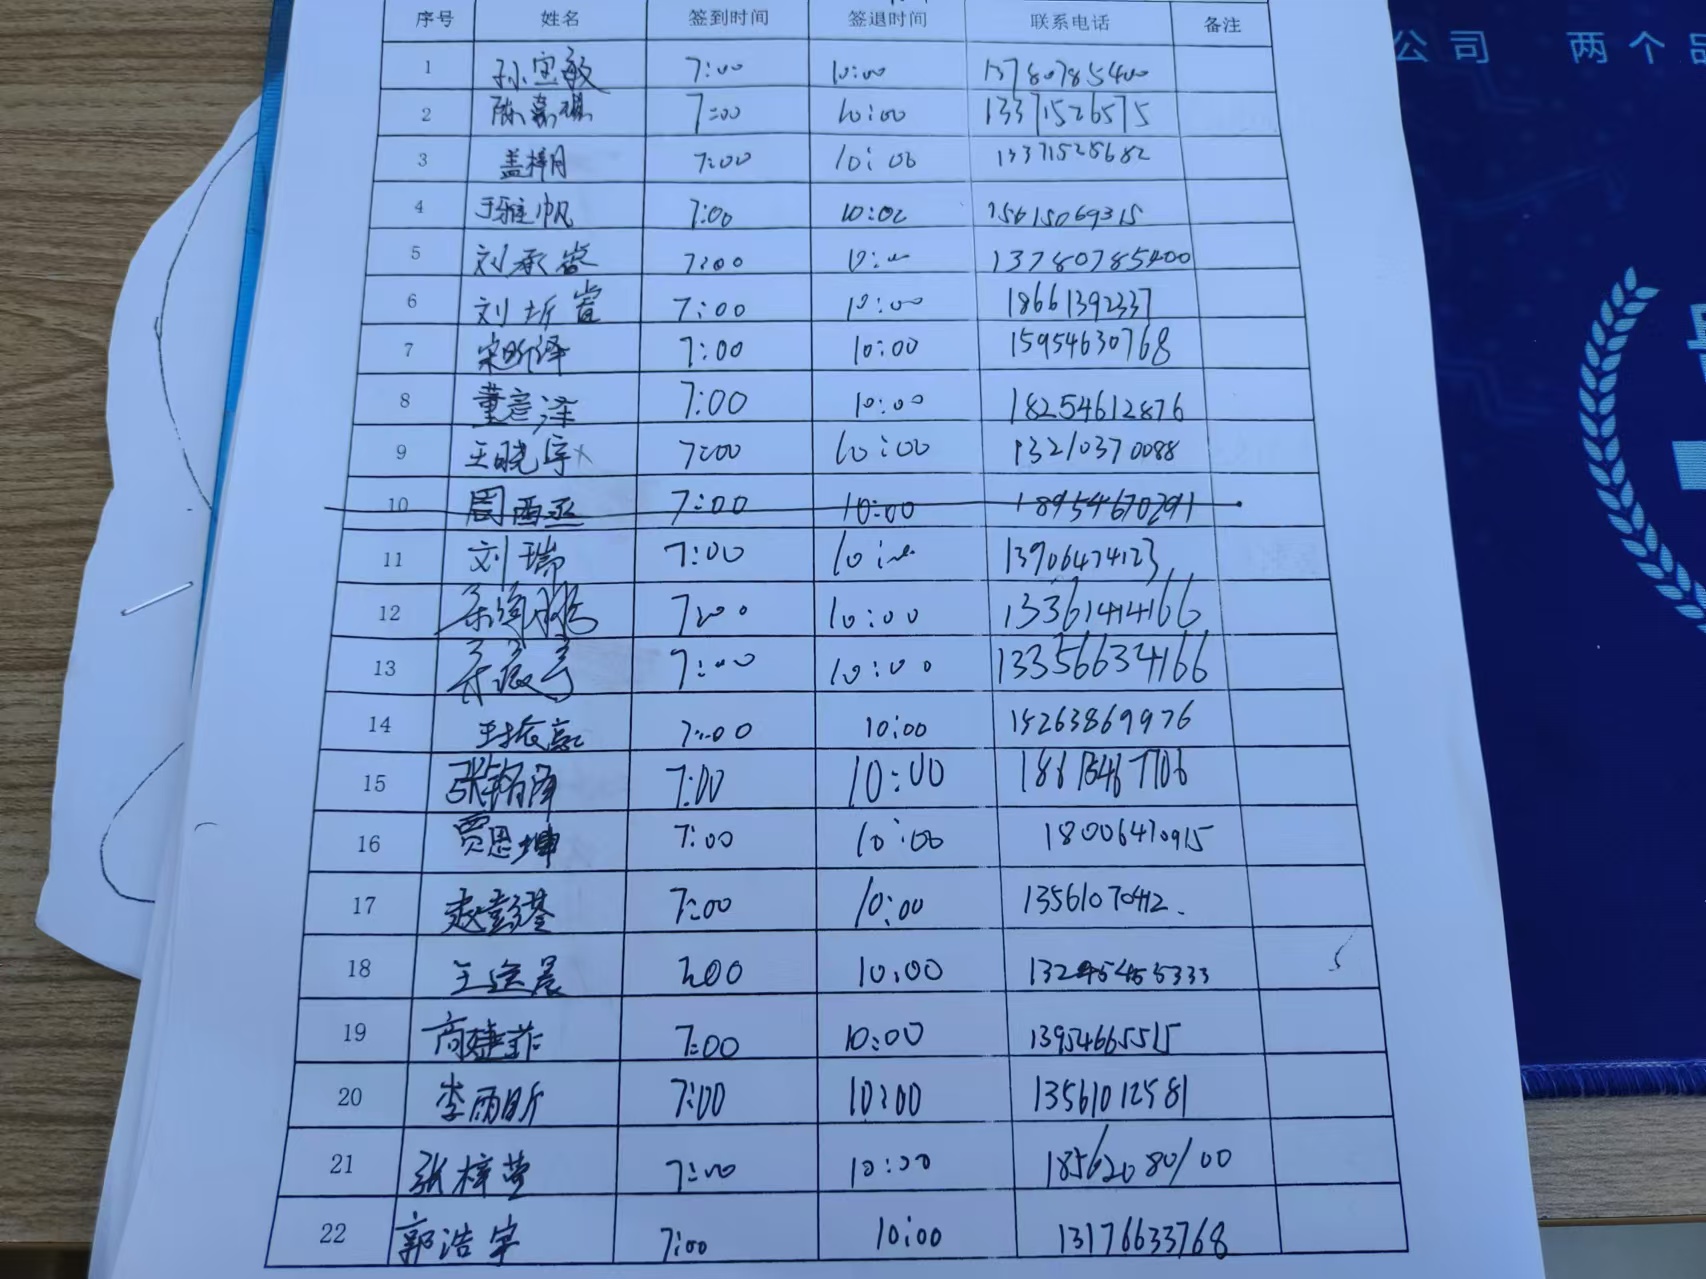 序号 姓名 签到时间 签退时间 联系电话 备注
1 孙宝敏 7:00 10:00 13780785400
2 陈嘉琪 7:00 10:00 13371526575
3 盖梓月 7:00 10:00 13371528682
4 于雅帆 7:00 10:00 15615069315
5 刘承 7:00 10:00 13780785400
6 刘圻萱 7:00 10:00 18661392337
7 宋昕泽 7:00 10:00 15954630768
8 董彦泽 7:00 10:00 18254612876
9 王晓宇 7:00 10:00 13210370088
10 周西丞 7:00 10:00 18954670291
11 刘瑞 7:00 10:00 13906474123
12 7:00 10:00 13361414166
13 7:00 10:00 13356634166
14 王振 7:00 10:00 15263869976
15 张铭泽 7:00 10:00
16 贾思坤 7:00 10:00 18006470915
17 赵 7:00 10:00 13561070412.
18 王 晨 7:00 10:00
19 商婕菲 7:00 10:00 13954665515
20 李雨昕 7:00 10:00 13561012581
21 张梓萱 7:00 10:00 18562080100
22 郭浩宇 7:00 10:00 13176633768
公司 两个品